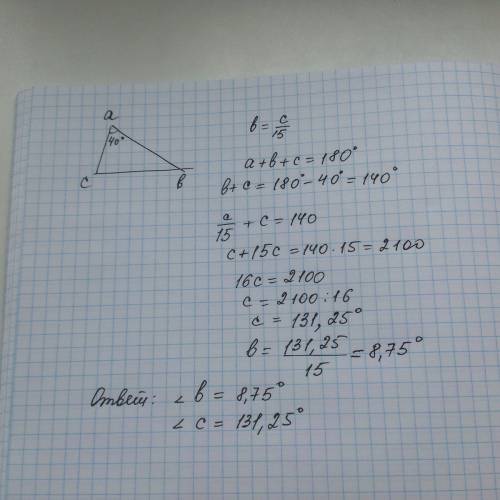 a
40°
c
b
b = c/15
a + b + c = 180°
b + c = 180° - 40° = 140°
c/15 + c = 140
c + 15c = 140 · 15 = 2100
16c = 2100
c = 2100 : 16
c = 131,25°
b = 131,25/15 = 8,75°
Ответ: ∠ b = 8,75°
∠ c = 131,25°